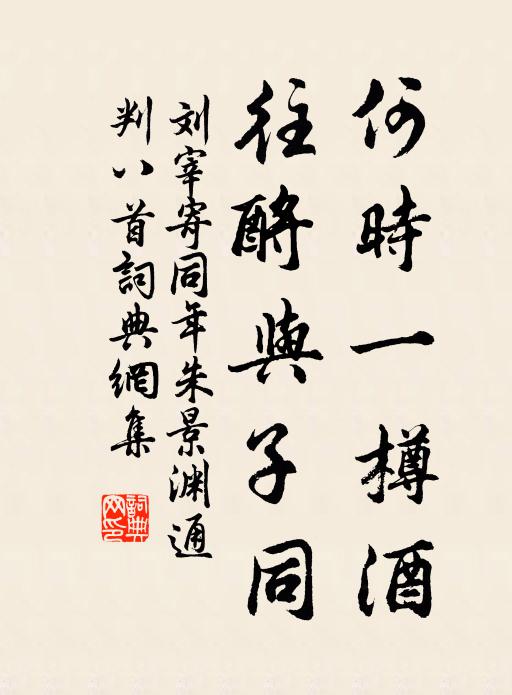 何時一樽酒
往酹與子同
刘宰寄同年朱景渊通
判八首詞典網集
詞典
网印